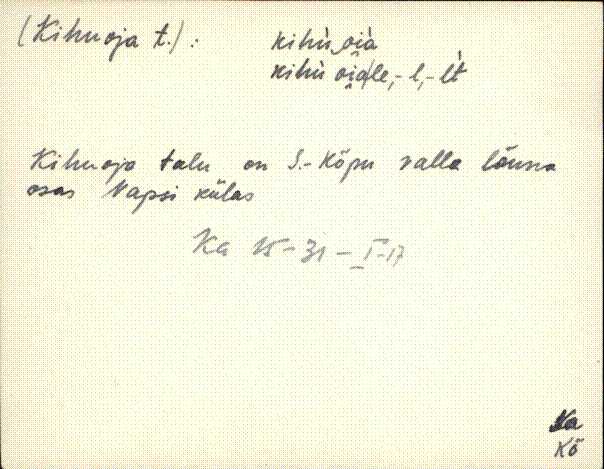 (Kihuoja t.) :
kihù oià
kihù oia|le, -l, -lt
Kihuoja talu on S.-Kõpu valla lõuna
osas Napsi külas
Ka 15-31-I-17
Ka
Kõ